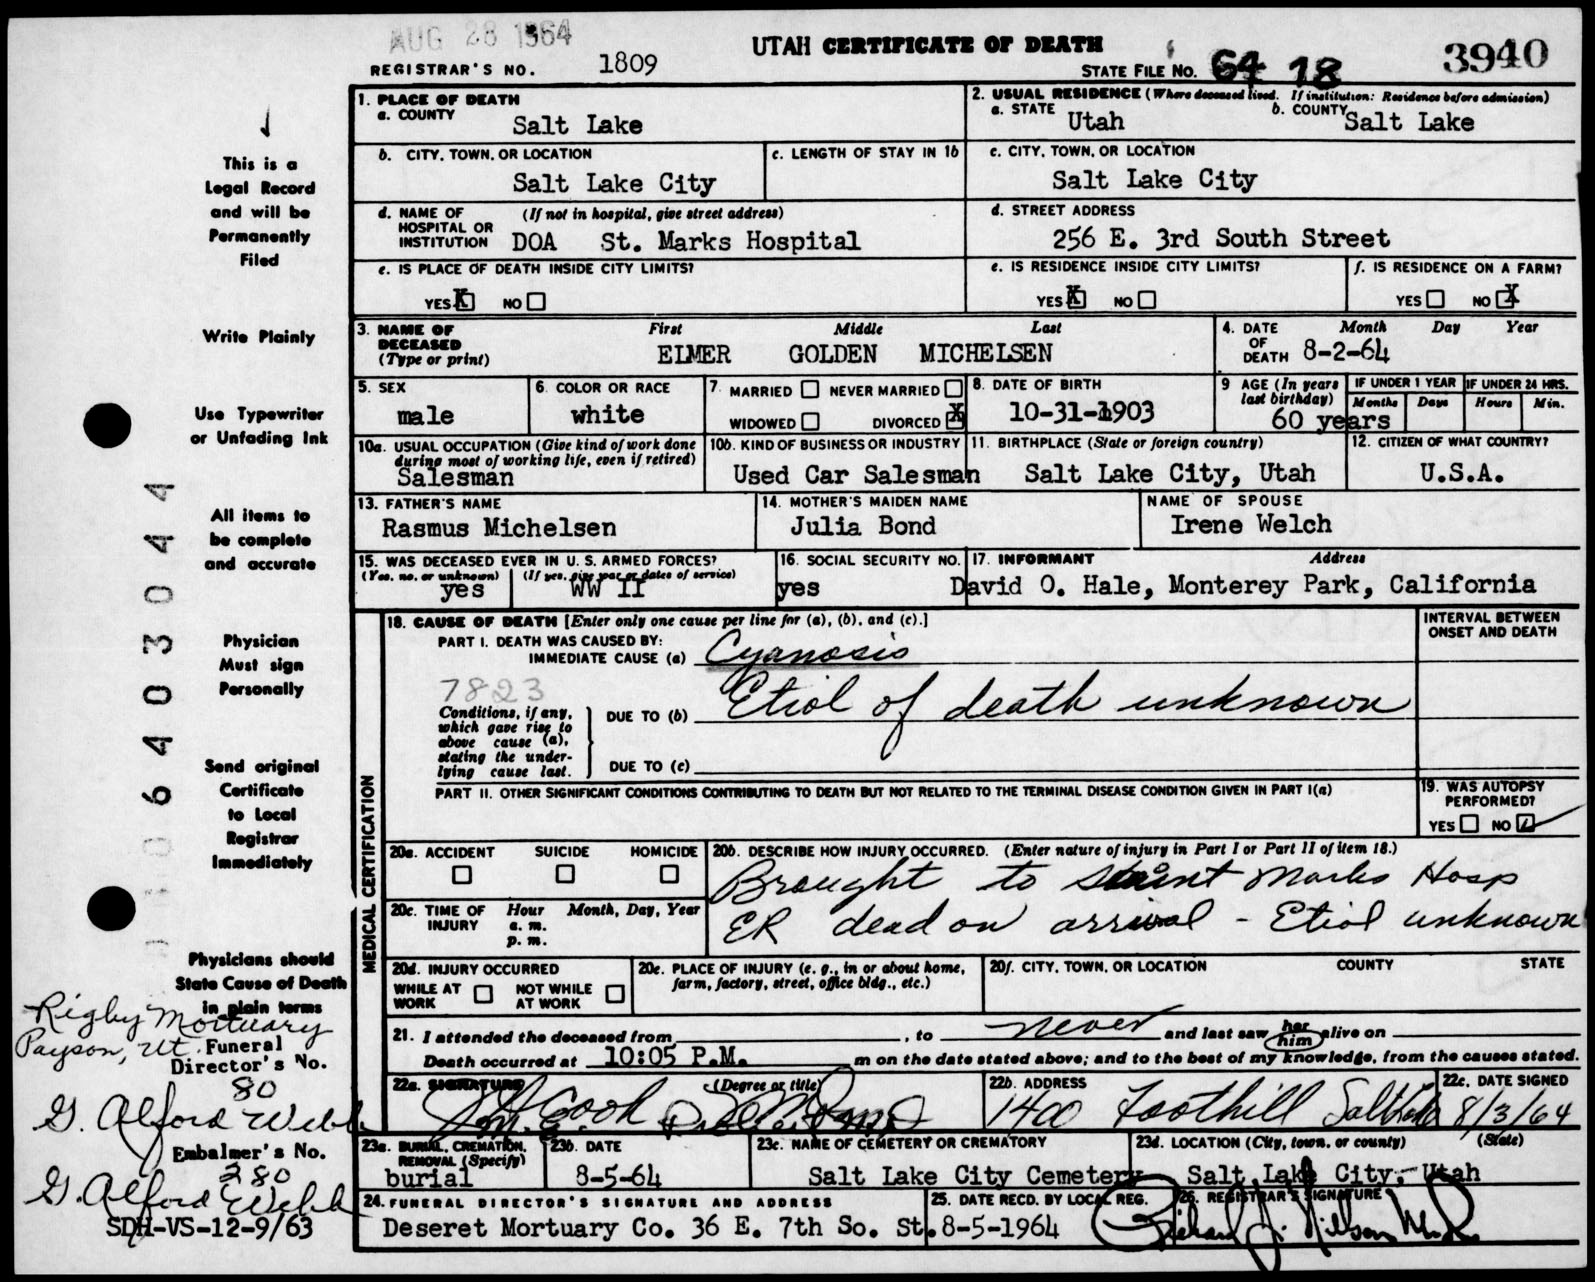 AUG 28 1964
UTAH CERTIFICATE OF DEATH
REGISTRAR'S NO. 1809
STATE FILE NO. 64 18 3940
This is a
Legal Record
and will be
Permanently
Filed
Write Plainly
Use Typewriter
or Unfading Ink
All items to
be complete
and accurate
Physician
Must sign
Personally
Send original
Certificate
to Local
Registrar
Immediately
Physicians should
State Cause of Death
in plain terms
Rigby Mortuary
Payson, Ut.
Funeral
Director's No.
80
G. Alford Webb
Embalmer's No.
280
G. Alford Webb
SDH-VS-12-9/63
006403044
1. PLACE OF DEATH
a. COUNTY
Salt Lake
2. USUAL RESIDENCE (Where deceased lived. If institution: Residence before admission)
a. STATE Utah b. COUNTY Salt Lake
b. CITY, TOWN, OR LOCATION
Salt Lake City
c. LENGTH OF STAY IN 1b
c. CITY, TOWN, OR LOCATION
Salt Lake City
d. NAME OF HOSPITAL OR INSTITUTION (If not in hospital, give street address)
DOA St. Marks Hospital
d. STREET ADDRESS
256 E. 3rd South Street
e. IS PLACE OF DEATH INSIDE CITY LIMITS?
YES X NO
e. IS RESIDENCE INSIDE CITY LIMITS?
YES X NO
f. IS RESIDENCE ON A FARM?
YES NO X
3. NAME OF DECEASED (Type or print)
First Middle Last
ELMER GOLDEN MICHELSEN
4. DATE OF DEATH Month Day Year
8-2-64
5. SEX
male
6. COLOR OR RACE
white
7. MARRIED NEVER MARRIED
WIDOWED DIVORCED X
8. DATE OF BIRTH
10-31-1903
9 AGE (In years last birthday)
60 years
IF UNDER 1 YEAR
Months Days
IF UNDER 24 HRS.
Hours Min.
10a. USUAL OCCUPATION (Give kind of work done during most of working life, even if retired)
Salesman
10b. KIND OF BUSINESS OR INDUSTRY
Used Car Salesman
11. BIRTHPLACE (State or foreign country)
Salt Lake City, Utah
12. CITIZEN OF WHAT COUNTRY?
U.S.A.
13. FATHER'S NAME
Rasmus Michelsen
14. MOTHER'S MAIDEN NAME
Julia Bond
NAME OF SPOUSE
Irene Welch
15. WAS DECEASED EVER IN U.S. ARMED FORCES?
(Yes, no, or unknown) (If yes, give war or dates of service)
yes WW II
16. SOCIAL SECURITY NO.
yes
17. INFORMANT Address
David O. Hale, Monterey Park, California
MEDICAL CERTIFICATION
18. CAUSE OF DEATH [Enter only one cause per line for (a), (b), and (c).]
INTERVAL BETWEEN ONSET AND DEATH
PART I. DEATH WAS CAUSED BY:
IMMEDIATE CAUSE (a) Cyanosis
7823
Conditions, if any, which gave rise to above cause (a), stating the under-lying cause last.
DUE TO (b) Etiol of death unknown
DUE TO (c)
PART II. OTHER SIGNIFICANT CONDITIONS CONTRIBUTING TO DEATH BUT NOT RELATED TO THE TERMINAL DISEASE CONDITION GIVEN IN PART I(a)
19. WAS AUTOPSY PERFORMED?
YES NO
20a. ACCIDENT SUICIDE HOMICIDE
20b. DESCRIBE HOW INJURY OCCURRED. (Enter nature of injury in Part I or Part II of item 18.)
Brought to Saint Marks Hosp
ER dead on arrival - Etiol unknown
20c. TIME OF INJURY Hour Month, Day, Year
a. m.
p. m.
20d. INJURY OCCURRED
WHILE AT WORK NOT WHILE AT WORK
20e. PLACE OF INJURY (e. g., in or about home, farm, factory, street, office bldg., etc.)
20f. CITY, TOWN, OR LOCATION COUNTY STATE
21. I attended the deceased from , to never and last saw her him alive on
Death occurred at 10:05 P.M. m on the date stated above; and to the best of my knowledge, from the causes stated.
22a. SIGNATURE (Degree or title)
Cook
22b. ADDRESS
1400 Foothill Salt Lake
22c. DATE SIGNED
8/3/64
23a. BURIAL, CREMATION, REMOVAL (Specify)
burial
23b. DATE
8-5-64
23c. NAME OF CEMETERY OR CREMATORY
Salt Lake City Cemetery
23d. LOCATION (City, town, or county) (State)
Salt Lake City, Utah
24. FUNERAL DIRECTOR'S SIGNATURE AND ADDRESS
Deseret Mortuary Co. 36 E. 7th So. St.
25. DATE RECD. BY LOCAL REG.
8-5-1964
26. REGISTRAR'S SIGNATURE